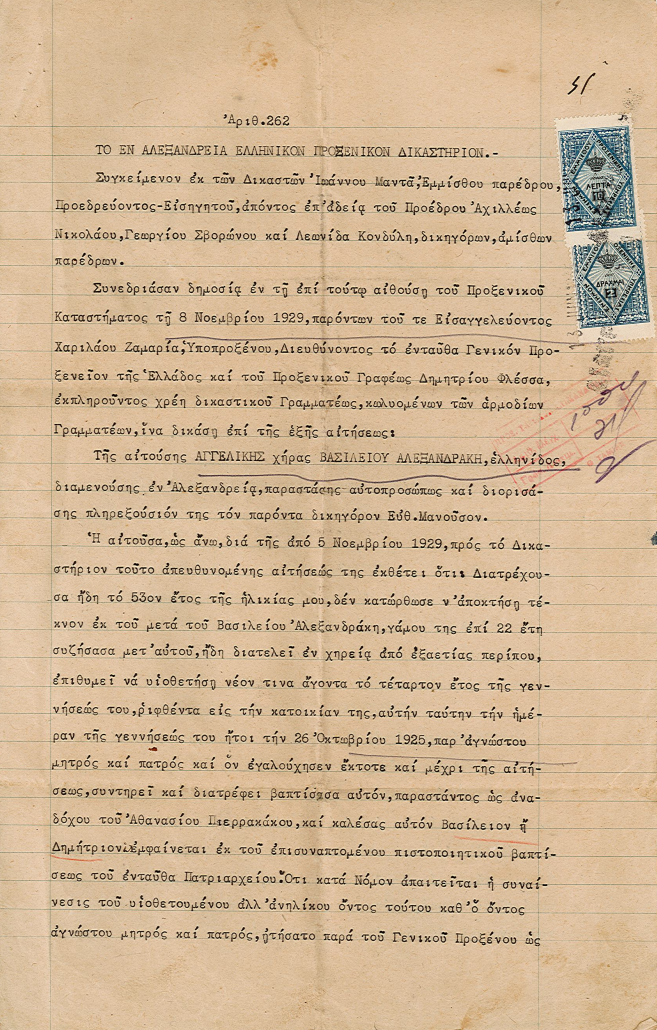 51
Ἀριθ.262
ΤΟ ΕΝ ΑΛΕΞΑΝΔΡΕΙΑ ΕΛΛΗΝΙΚΟΝ ΠΡΟΞΕΝΙΚΟΝ ΔΙΚΑΣΤΗΡΙΟΝ.-
Συγκείμενον ἐκ τῶν Δικαστῶν Ἰωάννου Μαντᾶ, Ἐμμίσθου παρέδρου,
Προεδρεύοντος-Εἰσηγητοῦ,ἀπόντος ἐπ'ἀδείᾳ τοῦ Προέδρου Ἀχιλλέως
Νικολάου,Γεωργίου Σβορώνου καί Λεωνίδα Κονδύλη,δικηγόρων,ἀμίσθων
παρέδρων.
Συνεδριάσαν δημοσίᾳ ἐν τῇ ἐπί τούτῳ αἰθούσῃ τοῦ Προξενικοῦ
Καταστήματος τῇ 8 Νοεμβρίου 1929,παρόντων τοῦ τε Εἰσαγγελεύοντος
Χαριλάου Ζαμαρία,Ὑποπροξένου,Διευθύνοντος τό ἐνταῦθα Γενικόν Προ-
ξενεῖον τῆς Ἑλλάδος καί τοῦ Προξενικοῦ Γραφέως Δημητρίου Φλέσσα,
ἐκπληροῦντος χρέη δικαστικοῦ Γραμματέως,κωλυομένων τῶν ἁρμοδίων
Γραμματέων,ἵνα δικάσῃ ἐπί τῆς ἑξῆς αἰτήσεως:
Τῆς αἰτούσης ΑΓΓΕΛΙΚΗΣ χήρας ΒΑΣΙΛΕΙΟΥ ΑΛΕΞΑΝΔΡΑΚΗ,ἑλληνίδος,
διαμενούσης ἐν Ἀλεξανδρείᾳ,παραστάσης αὐτοπροσώπως καί διορισά-
σης πληρεξούσιόν της τόν παρόντα δικηγόρον Εὐθ.Μανοῦσον.
Ἡ αἰτοῦσα,ὡς ἄνω,διά τῆς ἀπό 5 Νοεμβρίου 1929,πρός τό Δικα-
στήριον τοῦτο ἀπευθυνομένης αἰτήσεώς της ἐκθέτει ὅτι: Διατρέχου-
σα ἤδη τό 53ον ἔτος τῆς ἡλικίας μου,δέν κατώρθωσε ν'ἀποκτήσῃ τέ-
κνον ἐκ τοῦ μετά τοῦ Βασιλείου Ἀλεξανδράκη,γάμου της ἐπί 22 ἔτη
συζήσασα μετ'αὐτοῦ,ἤδη διατελεῖ ἐν χηρείᾳ ἀπό ἑξαετίας περίπου,
ἐπιθυμεῖ νά υἱοθετήσῃ νέον τινα ἄγοντα τό τέταρτον ἔτος τῆς γεν-
νήσεώς του,ριφθέντα εἰς τήν κατοικίαν της,αὐτήν ταύτην τήν ἡμέ-
ραν τῆς γεννήσεώς του ἤτοι τήν 26 Ὀκτωβρίου 1925,παρ'ἀγνώστου
μητρός καί πατρός καί ὅν ἐγαλούχησεν ἔκτοτε καί μέχρι τῆς αἰτή-
σεως,συντηρεῖ καί διατρέφει βαπτίσασα αὐτόν,παραστάντος ὡς ἀνα-
δόχου τοῦ Ἀθανασίου Πιερρακάκου,καί καλέσας αὐτόν Βασίλειον ἤ
Δημήτριον ἐμφαίνεται ἐκ τοῦ ἐπισυναπτομένου πιστοποιητικοῦ βαπτί-
σεως τοῦ ἐνταῦθα Πατριαρχείου.Ὅτι κατά Νόμον ἀπαιτεῖται ἡ συναί-
νεσις τοῦ υἱοθετουμένου ἀλλ'ἀνηλίκου ὄντος τούτου καθ'ὅ ὄντος
ἀγνώστου μητρός καί πατρός,ᾐτήσατο παρά τοῦ Γενικοῦ Προξένου ὡς
ΛΕΠΤΑ
ΔΡΑΧΜΑΙ
2